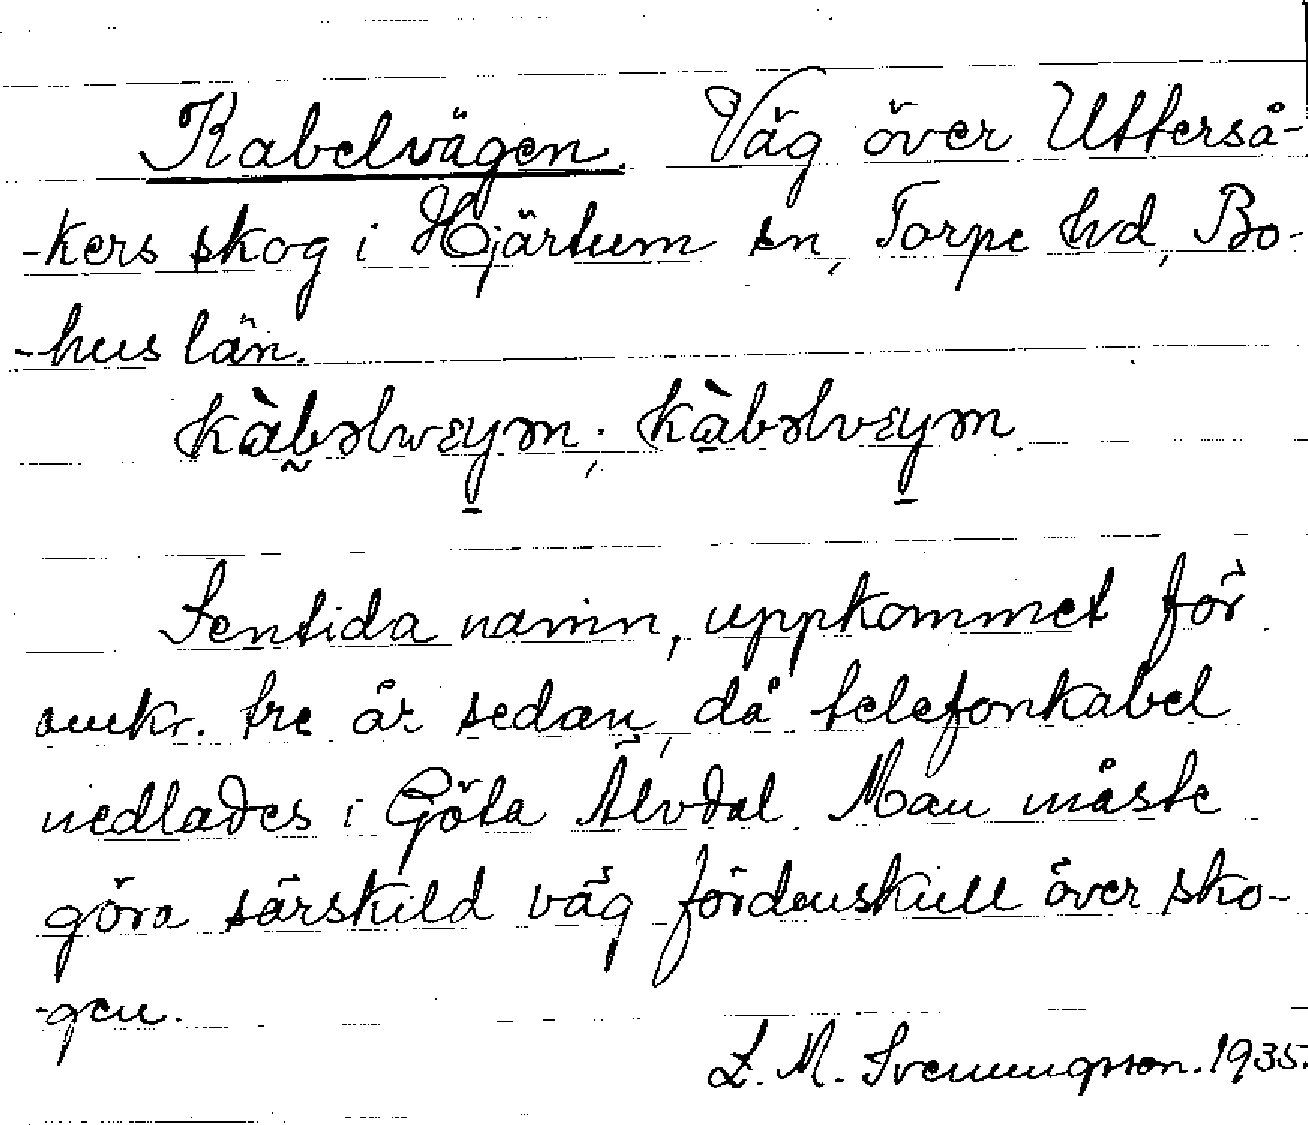 Kabelvägen. Väg över Utterså-
-kers skog i Hjärtum sn, Torpe hd, Bo-
-hus län.
kàbəlwɛγən; kàbəlvɛγən
Sentida namn, uppkommet för
omkr. tre år sedan, då telefonkabel
nedlades i Göta Älvdal. Man måste
göra särskild väg fördenskull över sko-
-gen.
L. M. Svenungsson. 1935.